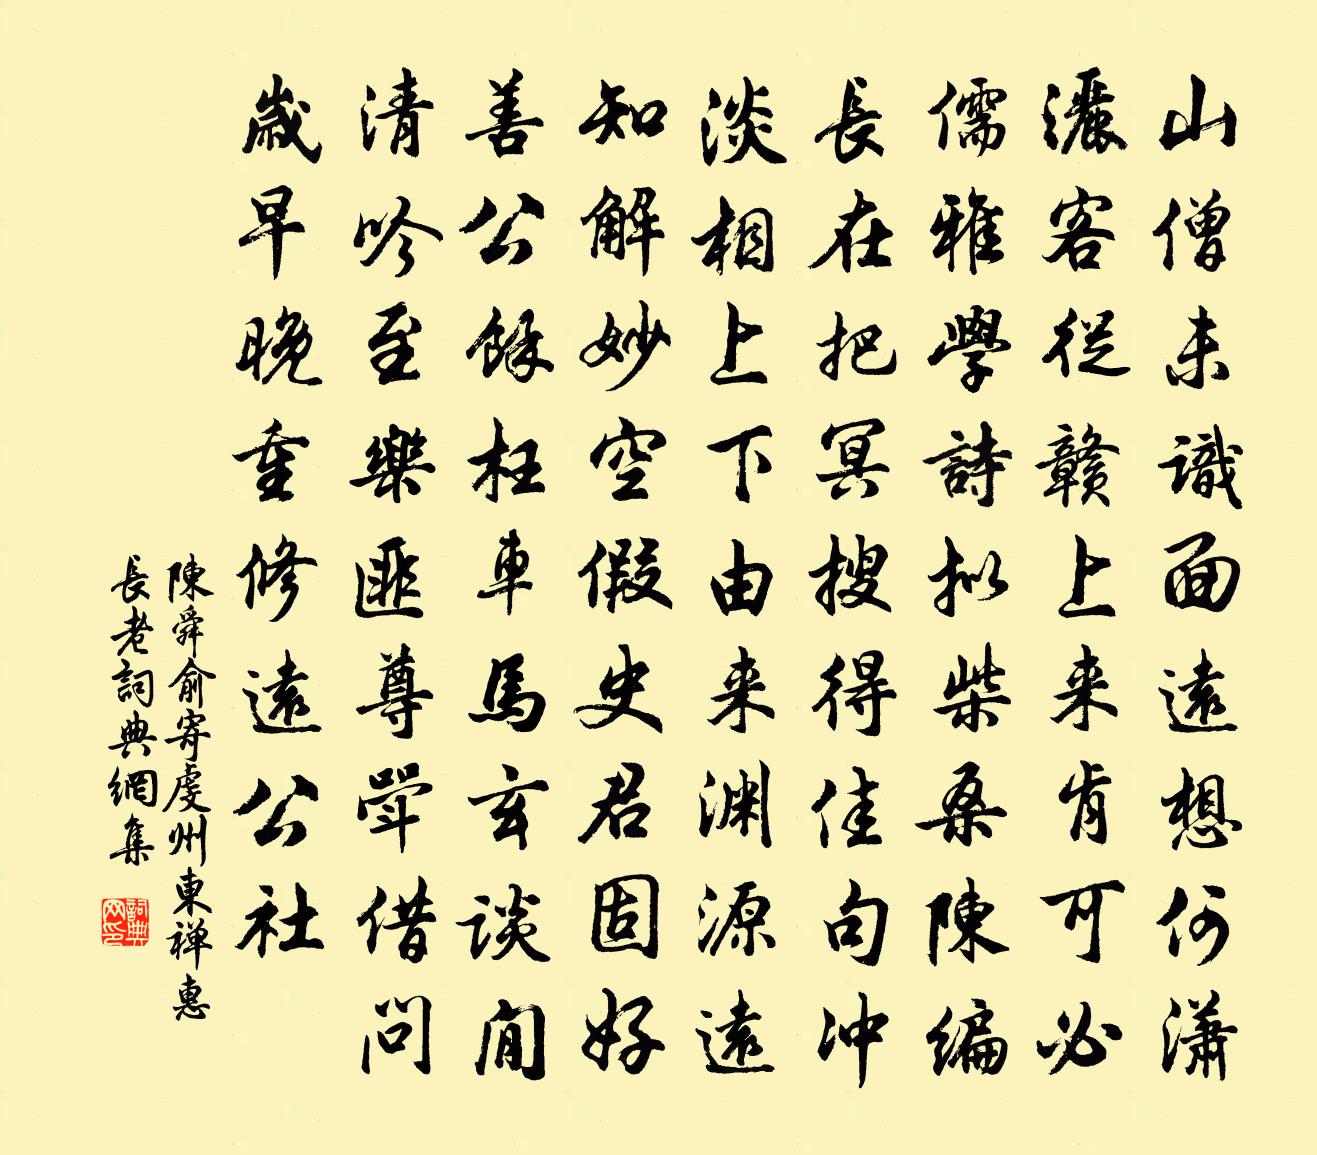 山僧未識面遠想何瀟
灑客從贛上来肯可必
儒雅學詩拟柴桑陳編
長在把冥搜得佳句冲
淡相上下由来渊源遠
知解妙空假史君固好
善公餘枉車馬玄談間
清吟至樂匪尊斝借問
歲早晚重修遠公社
陳舜俞寄虔州東禅惠
長老詞典網集
詞典网印